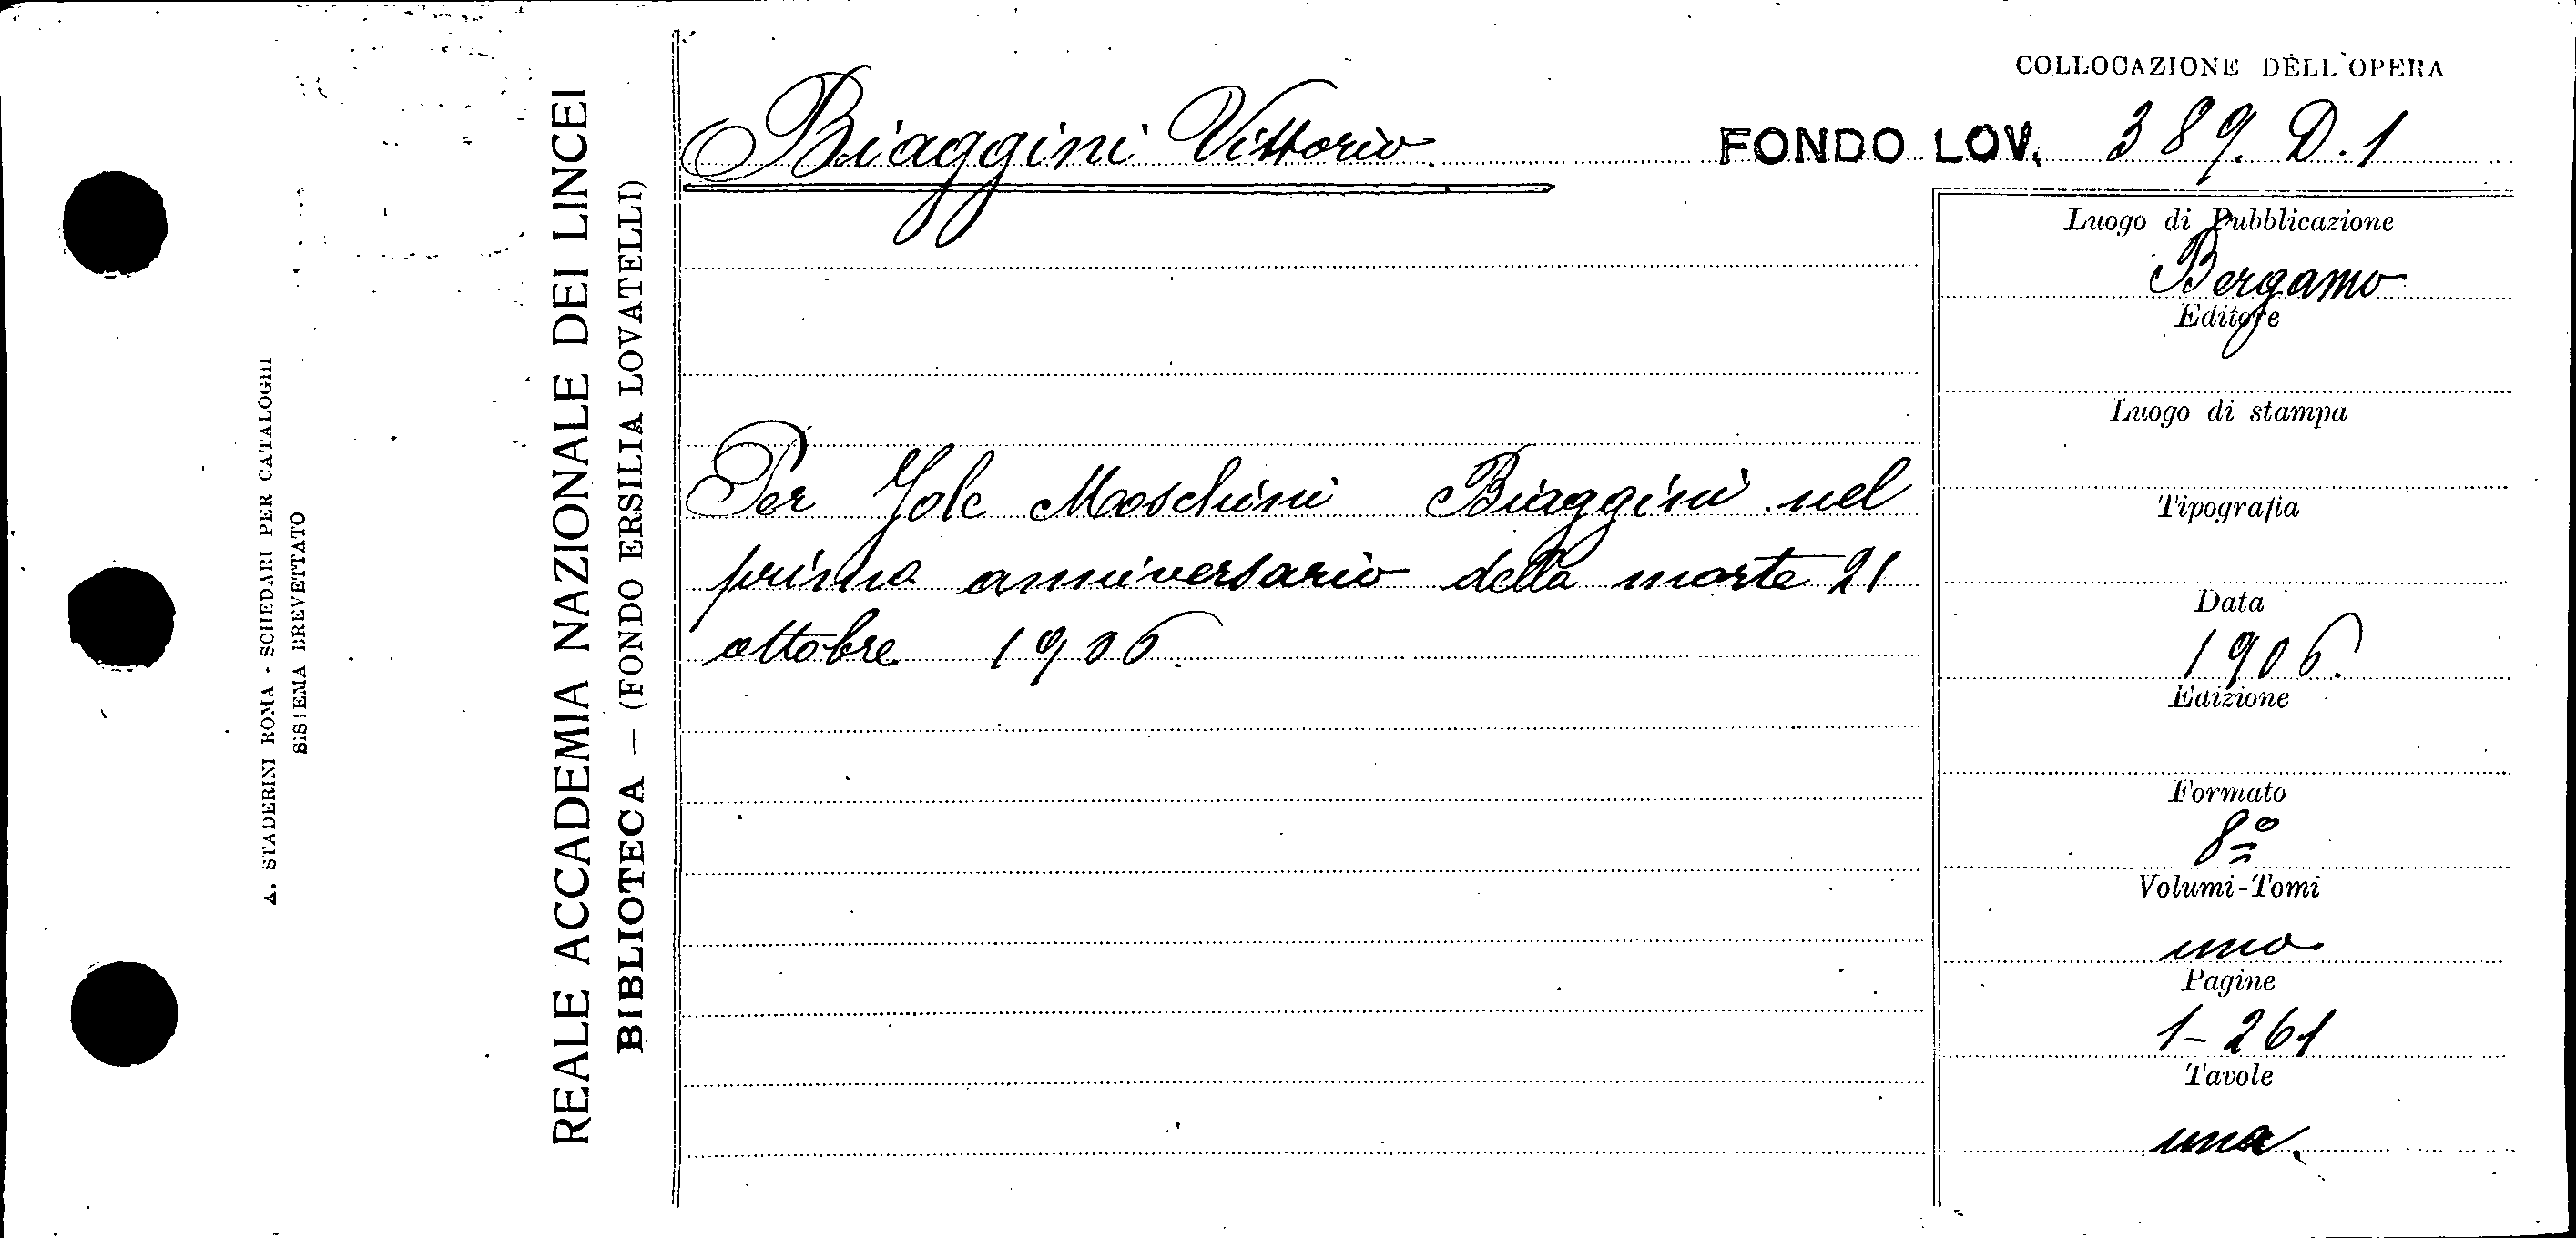 A. STADERINI ROMA - SCHEDARI PER CATALOGHI
SISTEMA BREVETTATO
REALE ACCADEMIA NAZIONALE DEI LINCEI
BIBLIOTECA — (FONDO ERSILIA LOVATELLI)
COLLOCAZIONE DELL'OPERA
Biaggini Vittorio.
FONDO LOV. 389. D. 1
Per Jole Moschini Biaggini nel
primo anniversario della morte 21
ottobre 1906.
Luogo di Pubblicazione
Bergamo
Editore
Luogo di stampa
Tipografia
Data
1906.
Edizione
Formato
8º
Volumi-Tomi
uno
Pagine
1-261
Tavole
una.